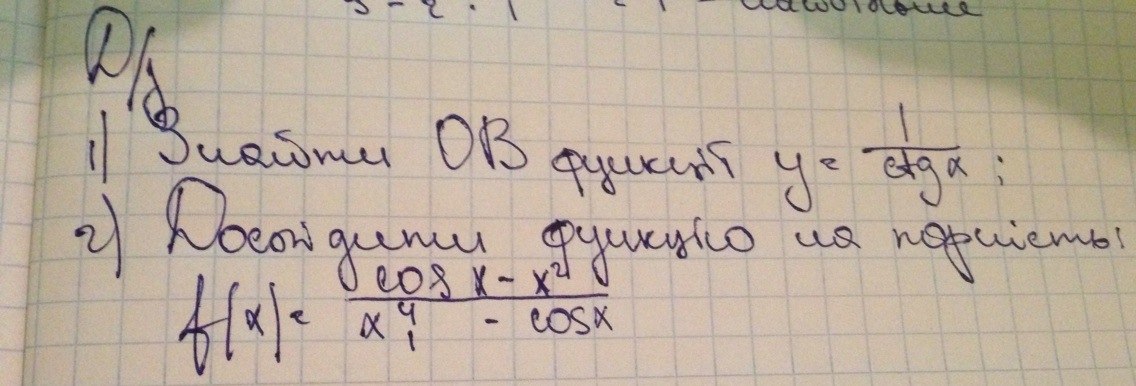 Д/з
1) Знайти ОВ функції y = 1/ctgx ;
2) Дослідити функцію на парність:
f(x) = (cos x - x²)/(x⁴ - cosx)